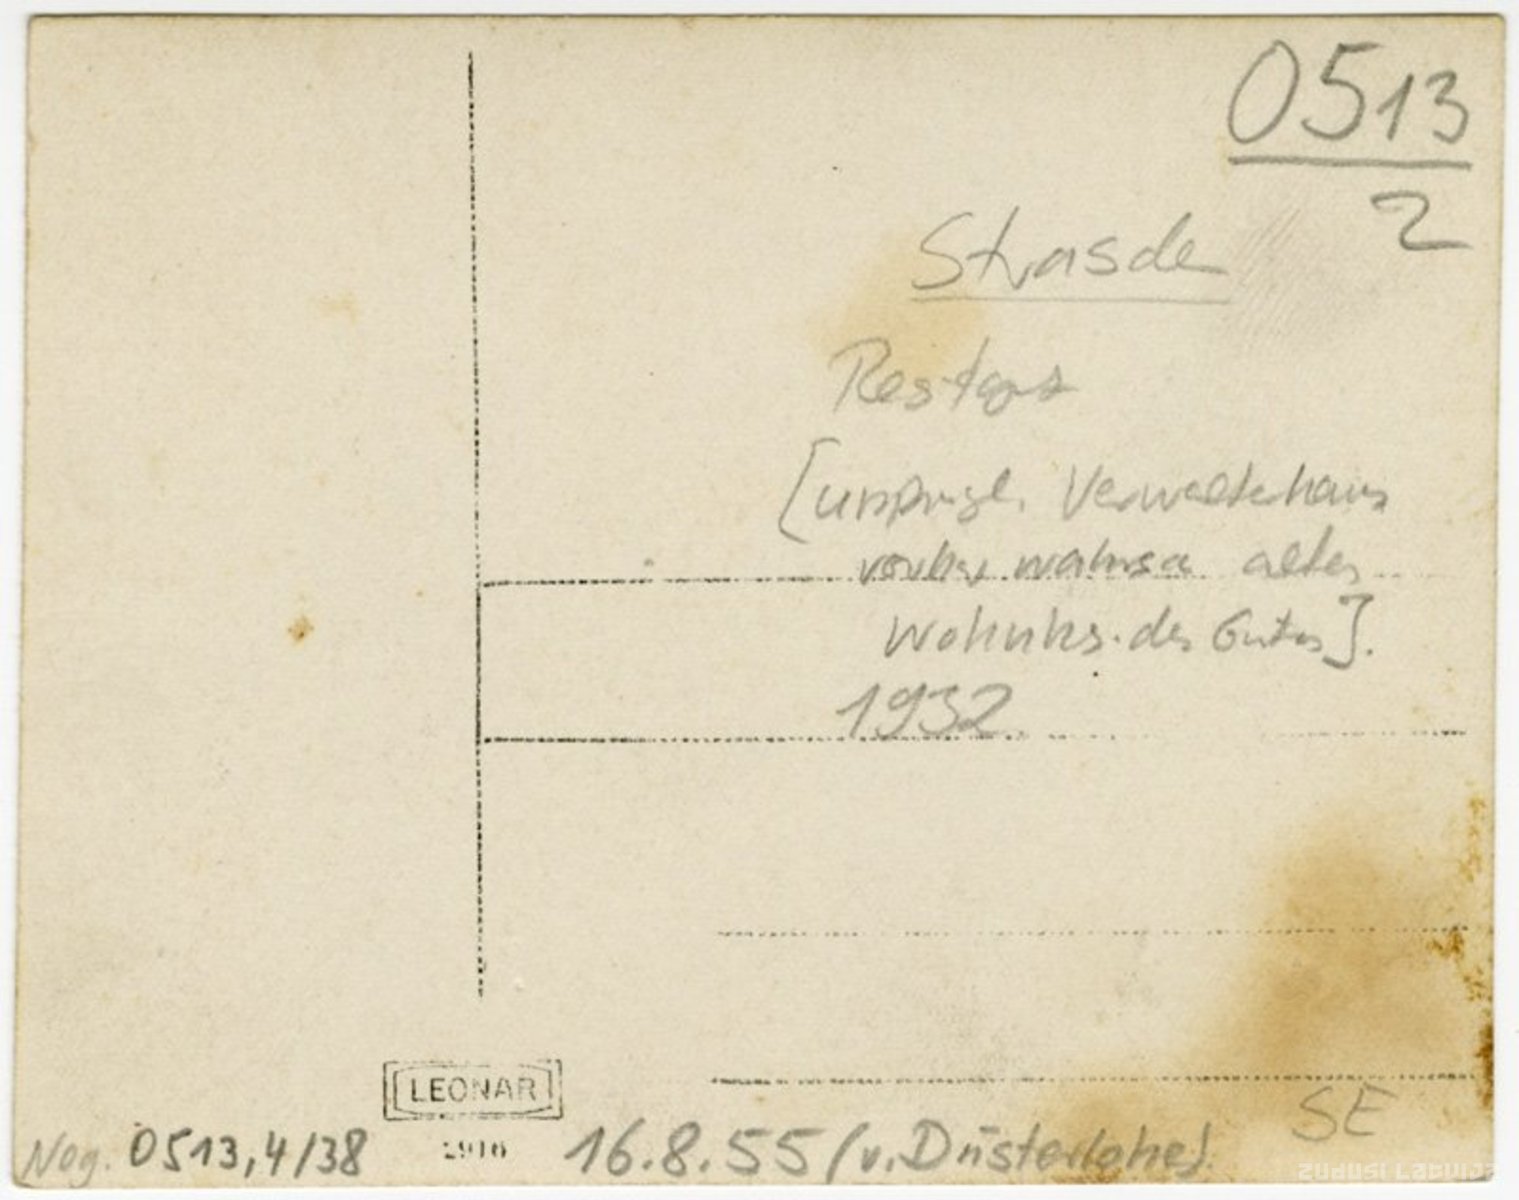 0513
2
Strasde
Restgut
[ursprgl. Verwalterhaus
vorher wahrsch. altes
Wohnhs. des Gutes].
1932
LEONAR
SE
Neg. 0513,4/38
16.8.55 (v. Düsterlohe).
zudusi Latvija